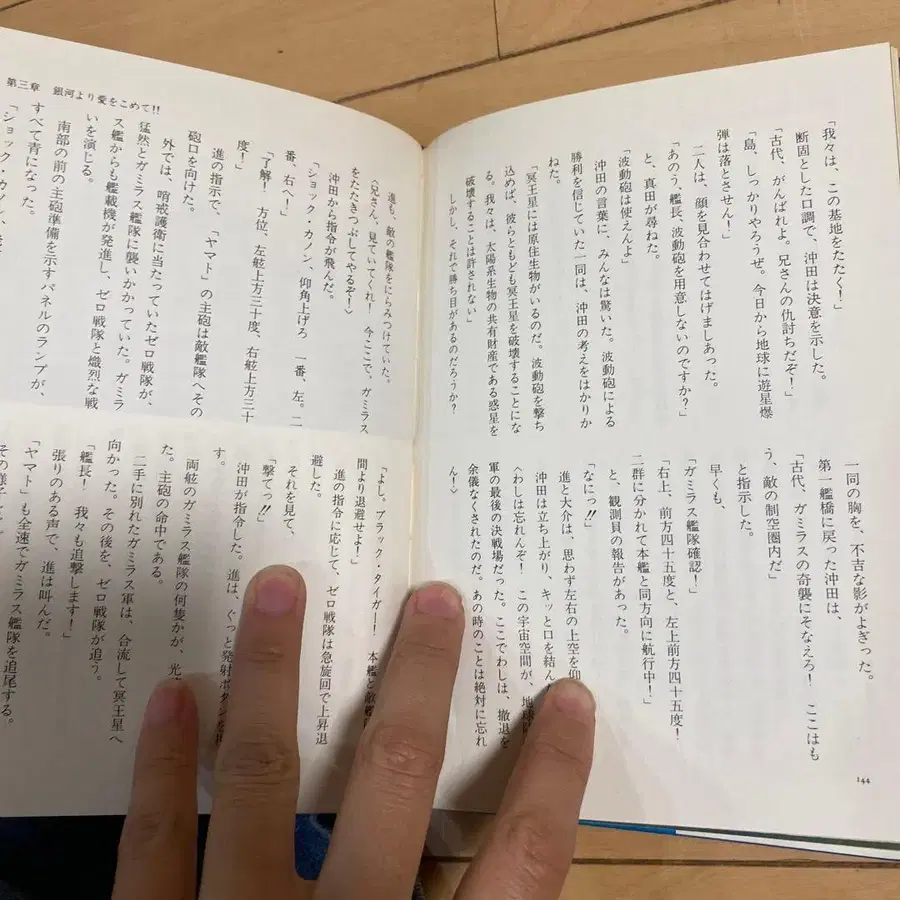 「我々は、この基地をたたく！」
断固とした口調で、沖田は決意を示した。
「古代、がんばれよ。兄さんの仇討ちだぞ！」
「島、しっかりやろうぜ。今日から地球に遊星爆
弾は落とさせん！」
二人は、顔を見合わせてはげましあった。
「あのう、艦長、波動砲を用意しないのですか？」
と、真田が尋ねた。
「波動砲は使えんよ」
沖田の言葉に、みんなは驚いた。波動砲による
勝利を信じていた一同は、沖田の考えをはかりか
ねた。
「冥王星には原住生物がいるのだ。波動砲を撃ち
込めば、彼らともども冥王星を破壊することにな
る。我々は、太陽系生物の共有財産である惑星を
破壊することは許されない」
しかし、それで勝ち目があるのだろうか？
一同の胸を、不吉な影がよぎった。
第一艦橋に戻った沖田は、
「古代、ガミラスの奇襲にそなえろ！　ここはも
う、敵の制空圏内だ」
と指示した。
早くも、
「ガミラス艦隊確認！」
「右上、前方四十五度と、左上前方四十五度！
二群に分かれて本艦と同方向に航行中！」
と、観測員の報告があった。
「なにっ!!」
進と大介は、思わず左右の上空を仰
沖田は立ち上がり、キッと口を結ん
〈わしは忘れんぞ！　この宇宙空間が、地球
軍の最後の決戦場だった。ここでわしは、撤退を
余儀なくされたのだ。あの時のことは絶対に忘れ
ん！〉
144
第三章　銀河より愛をこめて!!
進も、敵の艦隊をにらみつけていた。
〈兄さん、見ていてくれ！　今ここで、ガミラス
をたたきつぶしてやるぞ！〉
沖田から指令が飛んだ。
「ショック・カノン、仰角上げろ　一番、左。二
番、右へ！」
「了解！　方位、左舷上方三十度、右舷上方三十
度！」
進の指示で、「ヤマト」の主砲は敵艦隊へその
砲口を向けた。
外では、哨戒護衛に当たっていたゼロ戦隊が、
猛然とガミラス艦隊に襲いかかっていた。ガミラ
ス艦からも艦載機が発進し、ゼロ戦隊と熾烈な戦
いを演じる。
南部の前の主砲準備を示すパネルのランプが、
すべて青になった。
「ショック・カノン、
「よし。ブラック・タイガー！　本艦と敵艦
間より退避せよ！」
進の指令に応じて、ゼロ戦隊は急旋回で上昇退
避した。
それを見て、
「撃てっ!!」
沖田が指令した。進は、ぐっと発射ボタンを
す。
両舷のガミラス艦隊の何隻かが、光
た。主砲の命中である。
二手に別れたガミラス軍は、合流して冥王星へ
向かった。その後を、ゼロ戦隊が追う。
「艦長！　我々も追撃します！」
張りのある声で、進は叫んだ。
「ヤマト」も全速でガミラス艦隊を追尾する。
その様子